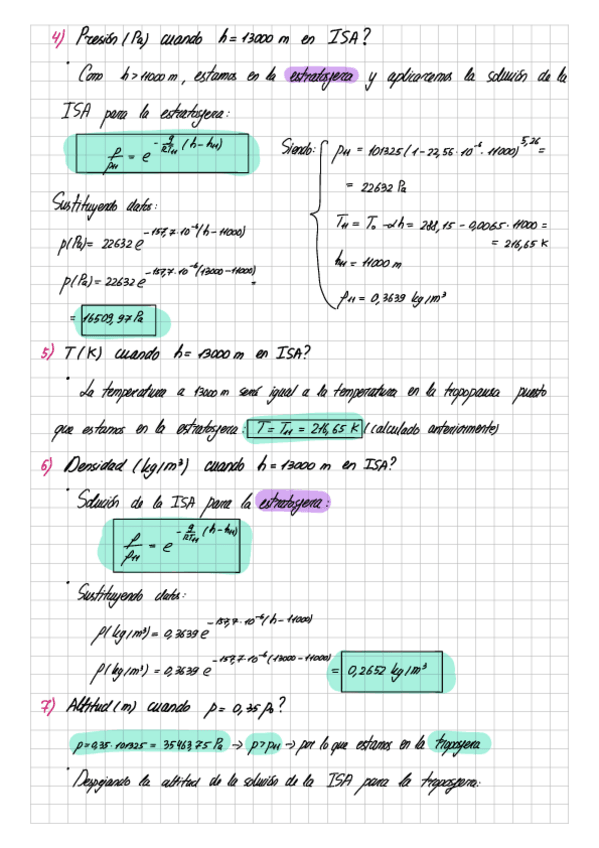 4) Presión (Pa) cuando h = 13000 m en ISA?
· Como h > 11000 m, estamos en la estratosfera y aplicaremos la solución de la
ISA para la estratosfera:
p/p₁₁ = e^(-g/(RT₁₁) (h - h₁₁))
Siendo: p₁₁ = 101325 (1 - 22,56 · 10⁻⁶ · 11000)^5,26 =
= 22632 Pa
T₁₁ = T₀ - αh = 288,15 - 0,0065 · 11000 =
= 216,65 K
h₁₁ = 11000 m
ρ₁₁ = 0,3639 kg/m³
Sustituyendo datos:
p(Pa) = 22632 e^(-157,7 · 10⁻⁶ (h - 11000))
p(Pa) = 22632 e^(-157,7 · 10⁻⁶ (13000 - 11000)) =
= 16509,97 Pa
5) T (K) cuando h = 13000 m en ISA?
· La temperatura a 13000 m será igual a la temperatura en la tropopausa puesto
que estamos en la estratosfera: T = T₁₁ = 216,65 K (calculado anteriormente)
6) Densidad (kg/m³) cuando h = 13000 m en ISA?
· Solución de la ISA para la estratosfera:
ρ/ρ₁₁ = e^(-g/(RT₁₁) (h - h₁₁))
· Sustituyendo datos:
ρ(kg/m³) = 0,3639 e^(-157,7 · 10⁻⁶ (h - 11000))
ρ(kg/m³) = 0,3639 e^(-157,7 · 10⁻⁶ (13000 - 11000)) = 0,2652 kg/m³
7) Altitud (m) cuando p = 0,35 p₀?
p = 0,35 · 101325 = 35463,75 Pa → p > p₁₁ → por lo que estamos en la troposfera
· Despejando la altitud de la solución de la ISA para la troposfera: